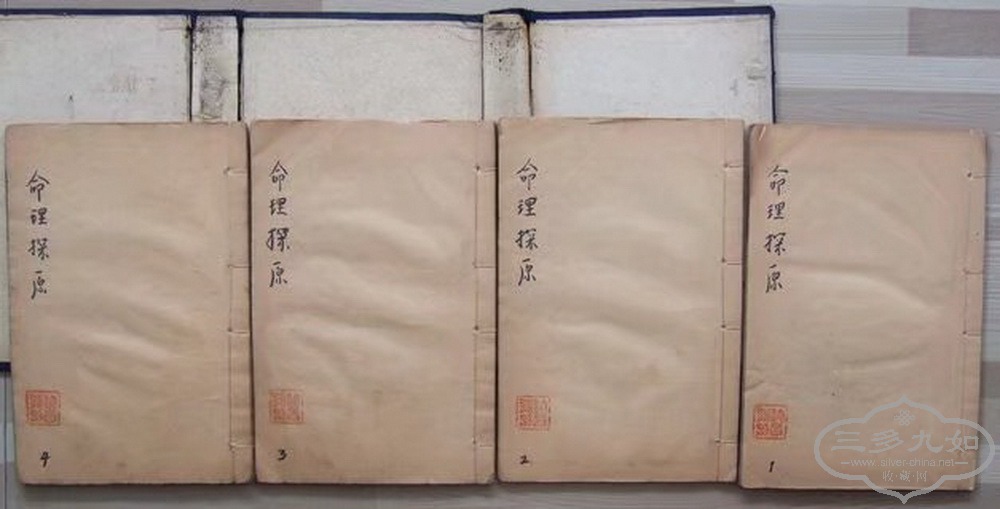 命理探原
1
命理探原
2
命理探原
3
命理探原
4
三多九如
www.silver-china.net
收·藏·网